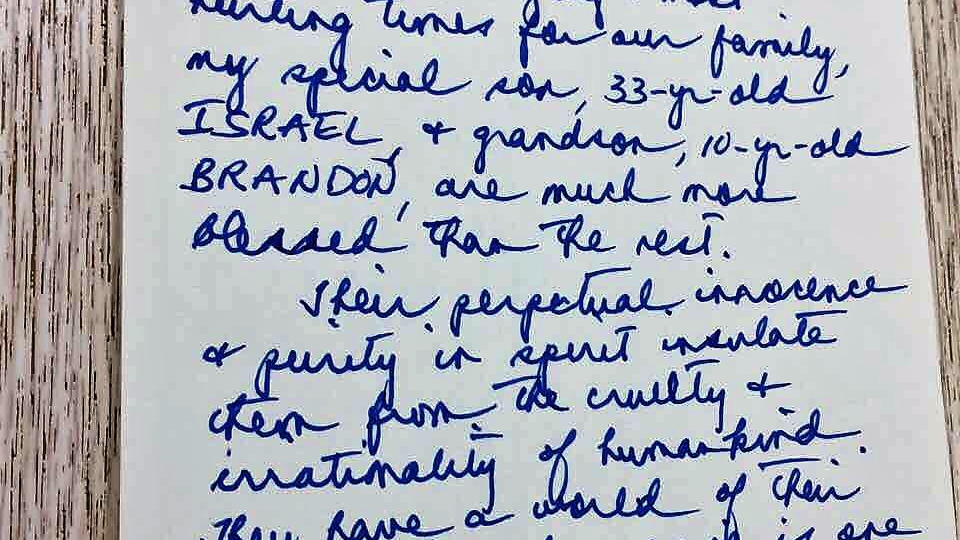 times for our family,
my special son, 33-yr-old
ISRAEL, & grandson, 10-yr-old
BRANDON, are much more
blessed than the rest.
Their perpetual innocence
& purity in spirit insulate
them from the cruelty &
irrationality of humankind.
They have a world of their
is one